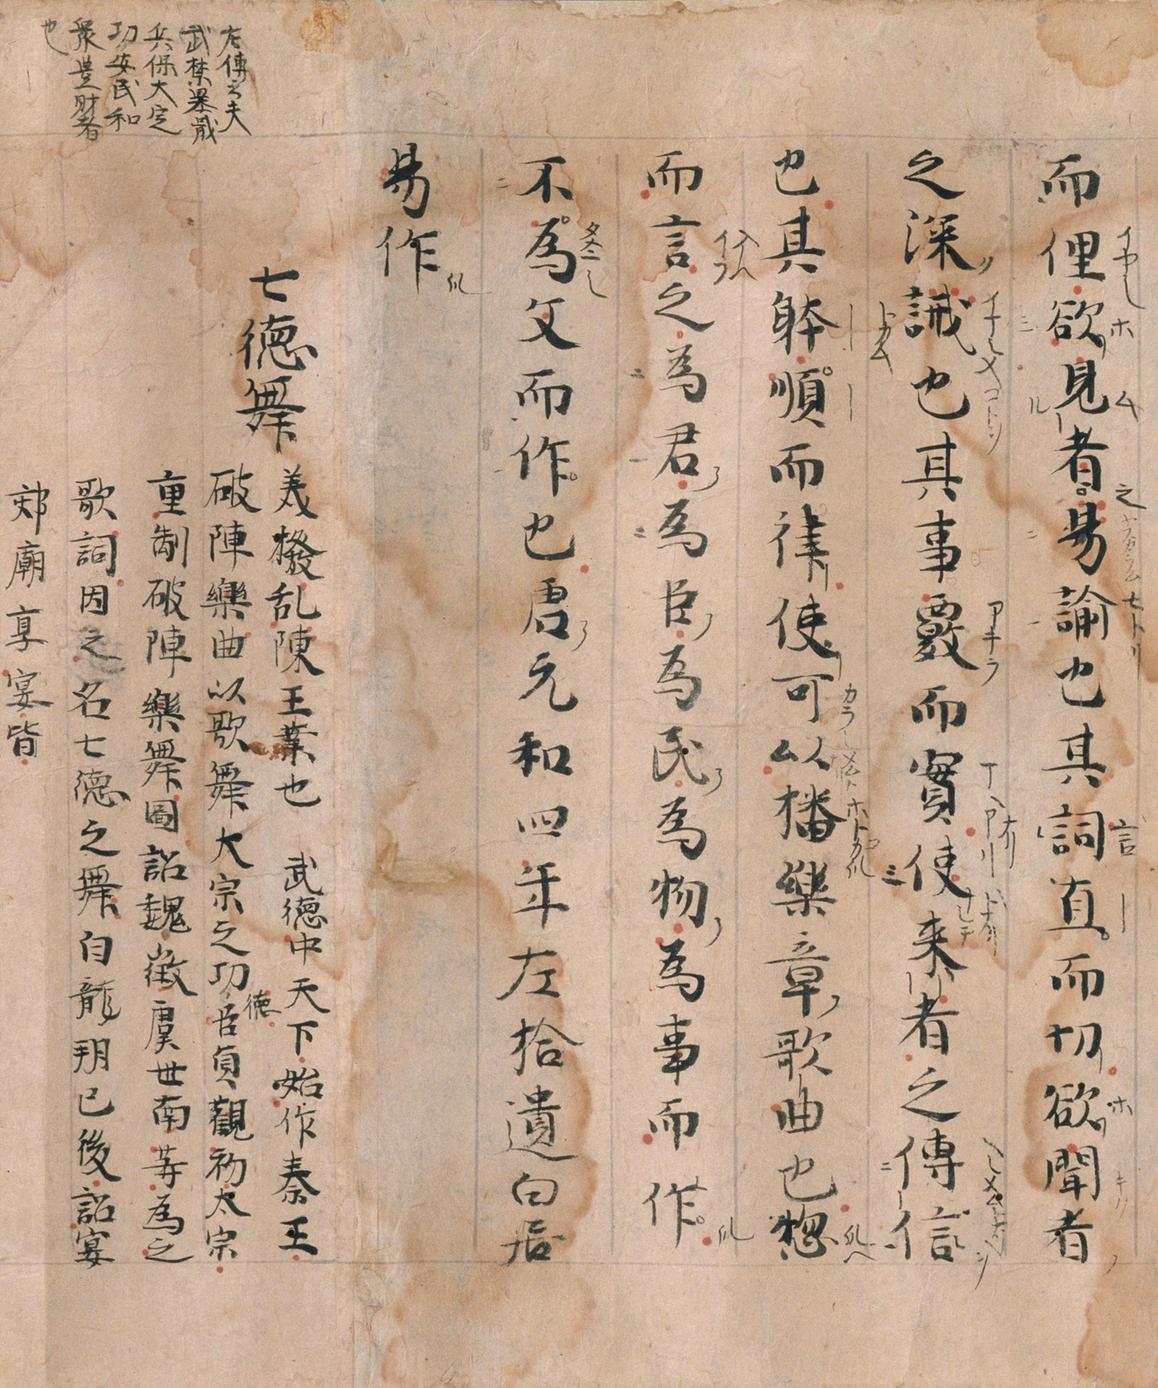 而俚欲見者易論也其詞直而切欲聞者
之深誡也其事覈而實使来者之傳信
也其躰順而律使可以播樂章歌曲也惣
而言之為君為臣為民為物為事而作
不為文而作也唐元和四年左拾遺白居
易作
七徳舞
美撥乱陳王業也 武徳中天下始作秦王
破陣樂曲以歌舞大宗之功
徳
貞觀初太宗
重制破陣樂舞圖詔魏徴虞世南等為之
歌詞因之名七徳之舞自龍朔已後詔宴
郊廟享宴皆
左傳云夫
武禁暴戢
兵保大定
功安民和
衆豊財者
也